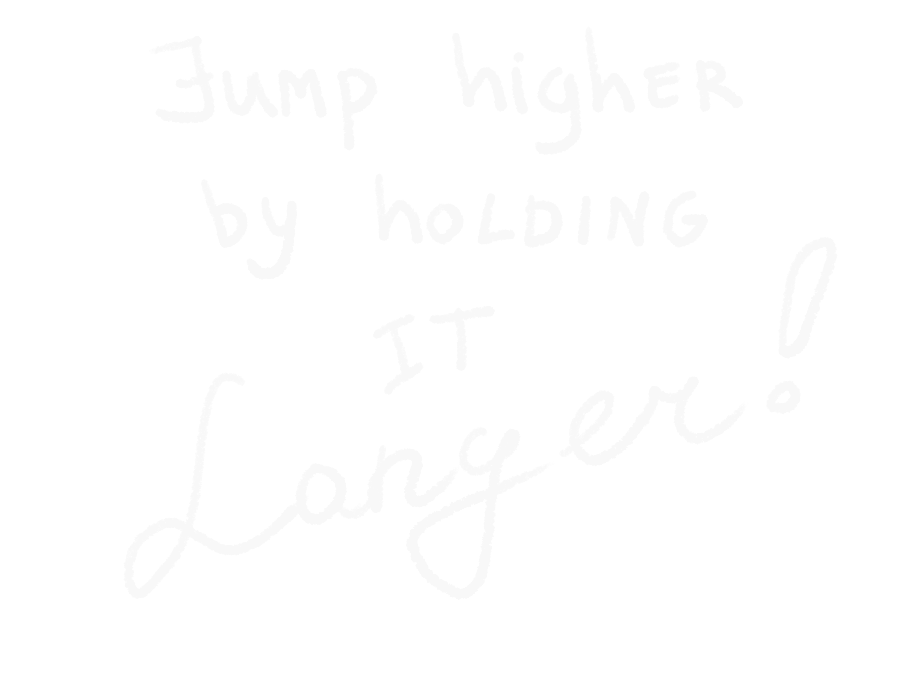 Jump higher
by holding
IT
Longer!